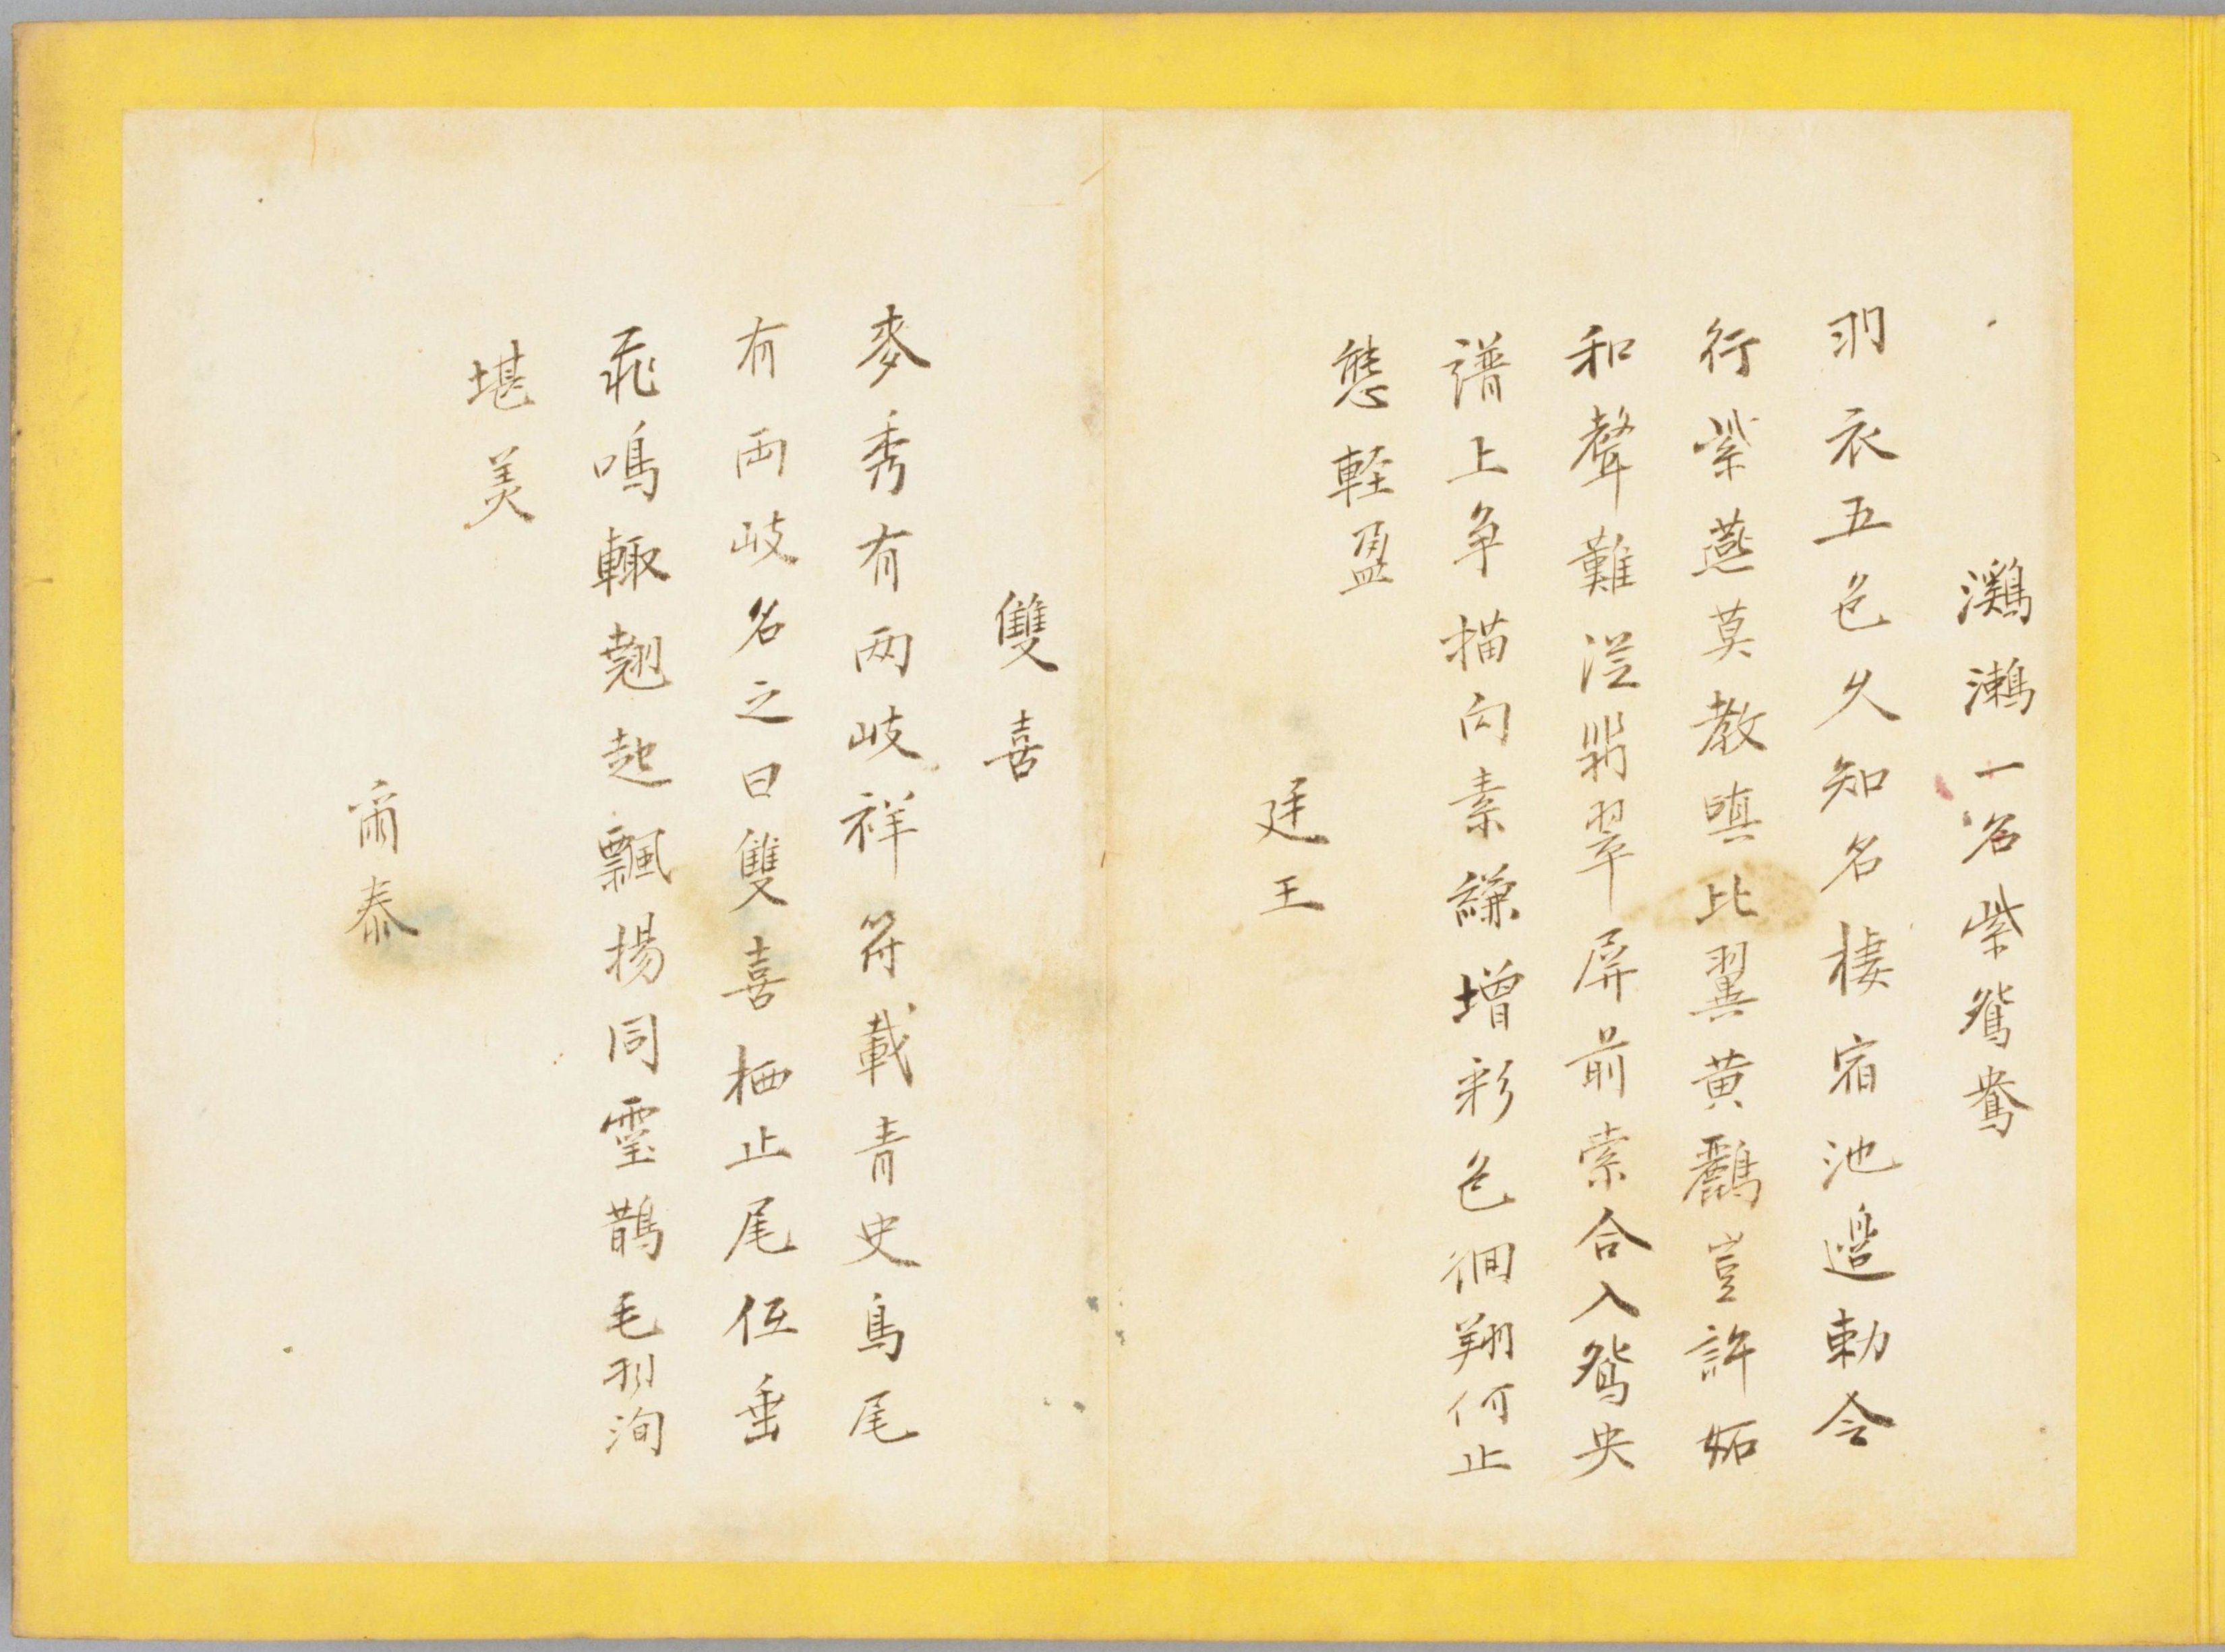 鸂鷘一名紫鴛鴦
羽衣五色久知名棲宿池邊勅令
行紫燕莫教嗔比翼黄鸝豈許妬
和聲難從翡翠屏前索合入鴛央
譜上争描向素縑增彩色徊翔何止
態軽盈
廷王
雙喜
麥秀有两岐祥符載青史鳥尾
有両岐名之曰雙喜栖止尾低垂
飛鳴輙翹起飄揚同靈鵲毛羽洵
堪美
爾泰